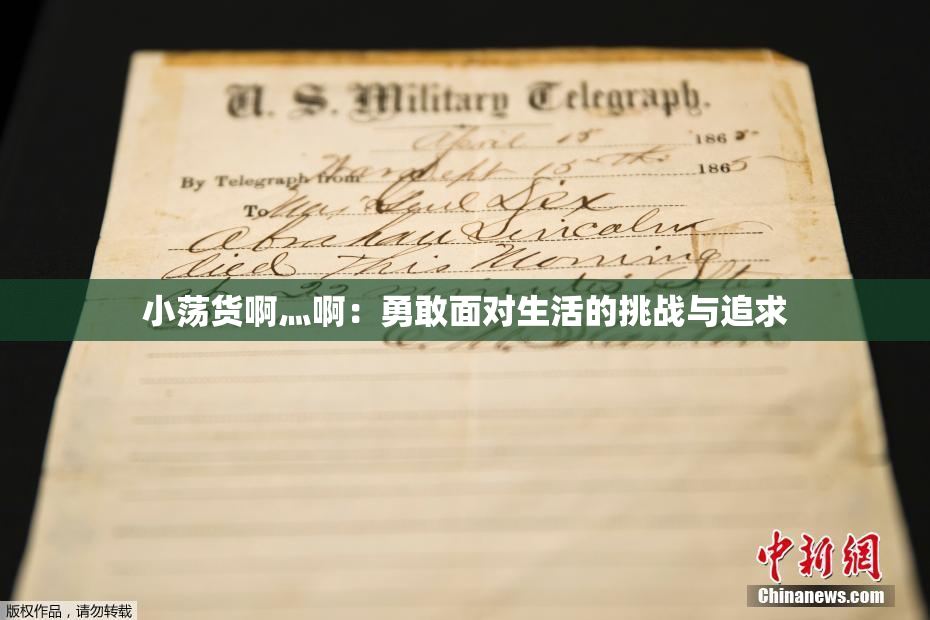 U. S. Military Telegraph.
April 15 1865
By Telegraph from War Dept 15th 1865
To Maj Genl Dix
Abraham Lincoln
died This Morning
at 22 minutes after
小荡货啊灬啊：勇敢面对生活的挑战与追求
E. M. Stanton
中新网
Chinanews.com
版权作品，请勿转载